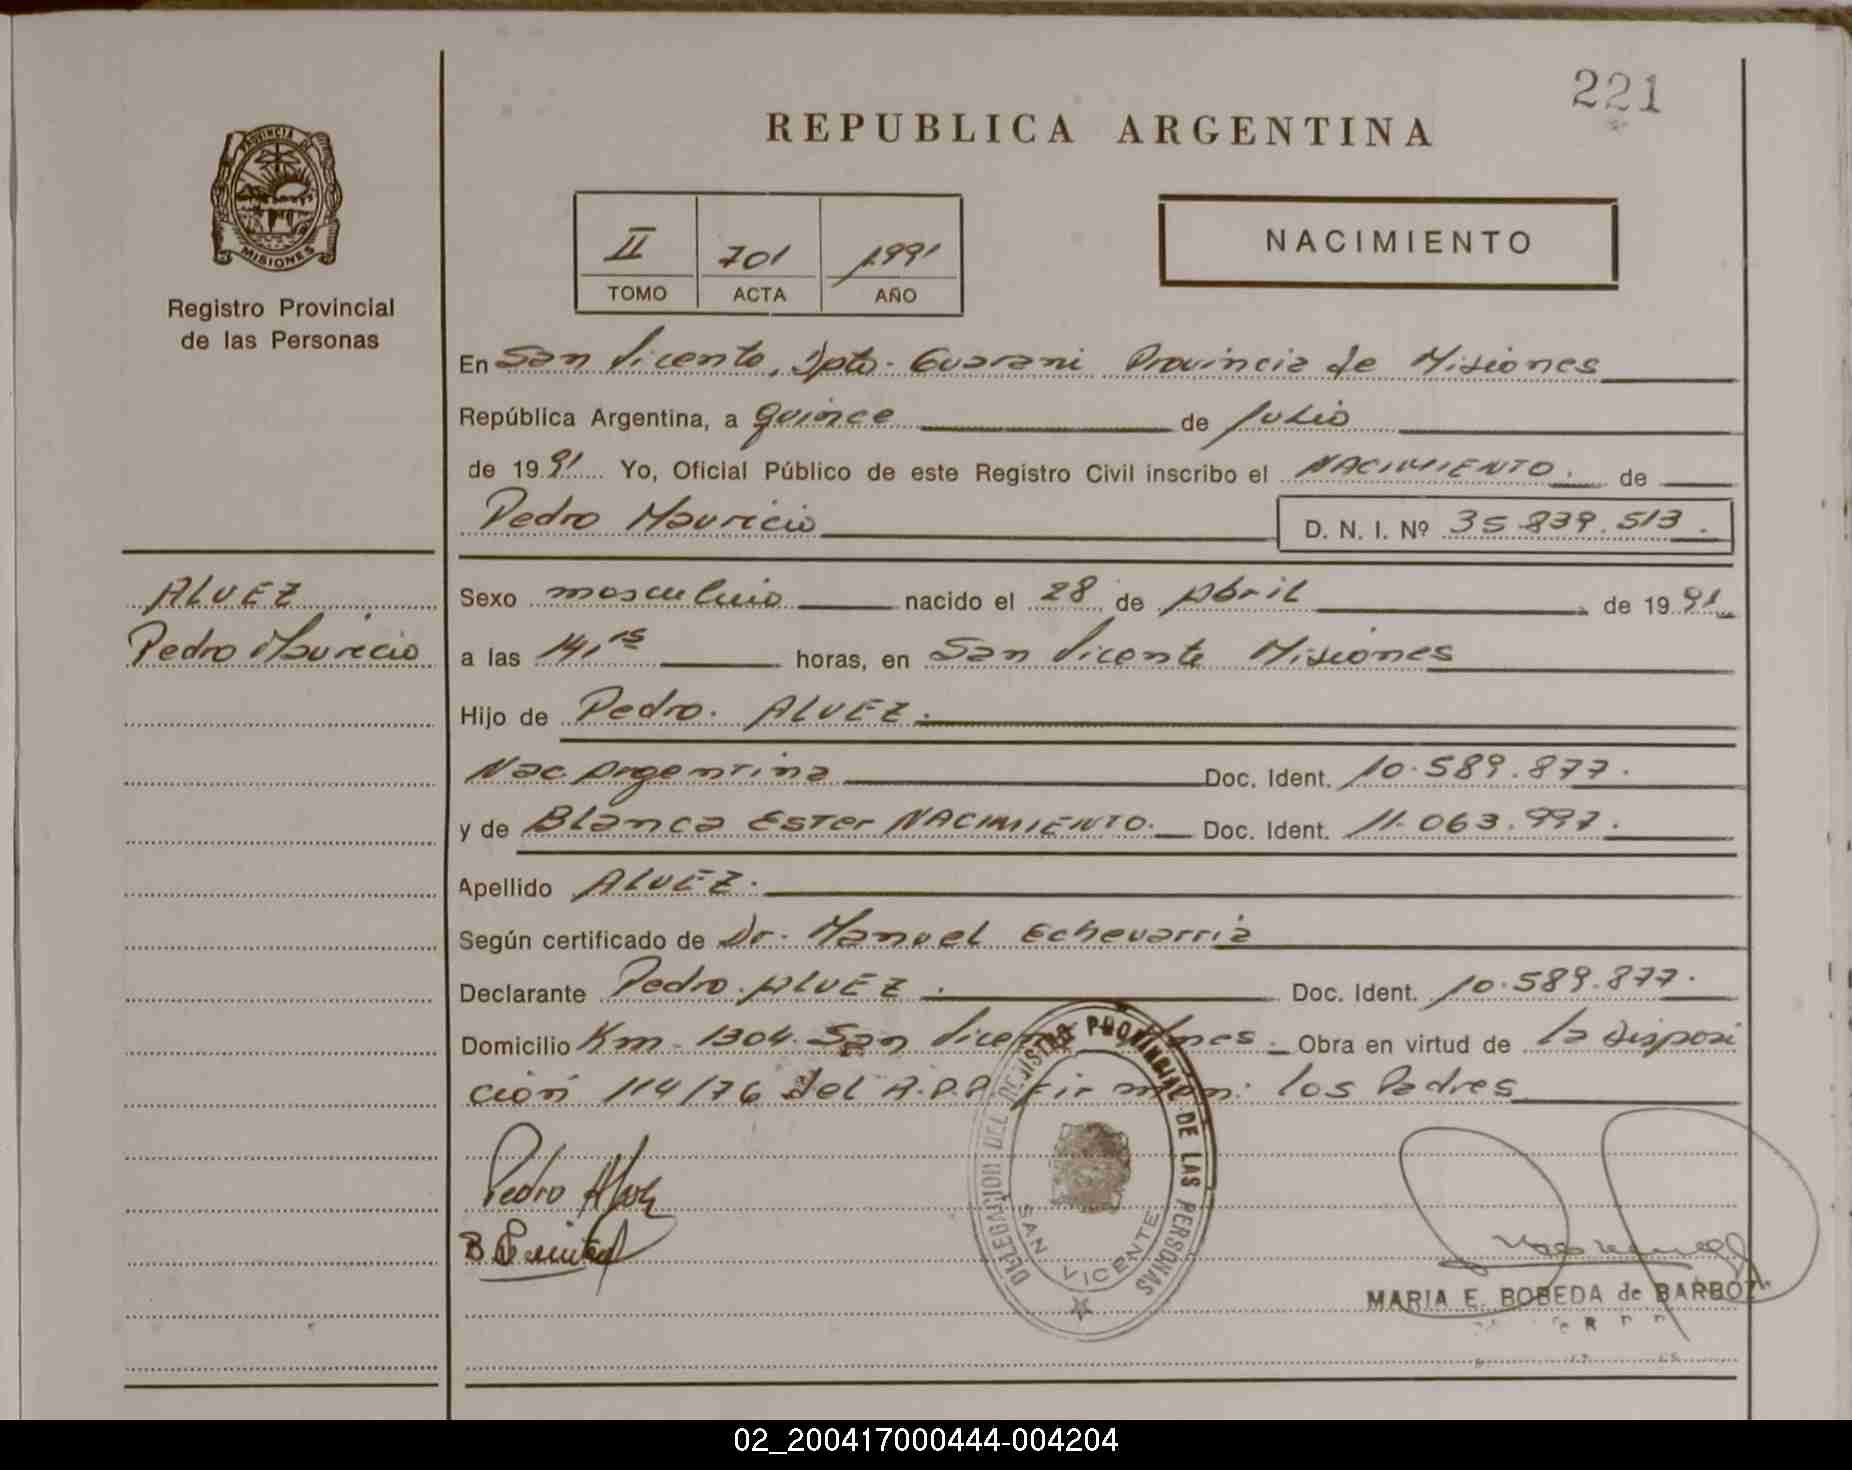 221
REPUBLICA ARGENTINA
PROVINCIA DE
MISIONES
Registro Provincial
de las Personas
II 701 1991
TOMO ACTA AÑO
NACIMIENTO
En San Vicente, Dpto. Guarani Provincia de Misiones
República Argentina, a quince de Julio
de 1991 Yo, Oficial Público de este Registro Civil inscribo el NACIMIENTO. de
Pedro Mauricio D. N. I. Nº 35.839.513.
ALVEZ
Pedro Mauricio
Sexo masculino nacido el 28 de Abril de 1991
a las 14,15 horas, en San Vicente Misiones
Hijo de Pedro. ALVEZ.
Nac. Argentina Doc. Ident. 10.589.877.
y de Blanca Ester NACIMIENTO. Doc. Ident. 11.063.997.
Apellido ALVEZ.
Según certificado de Dr. Manuel Echevarria
Declarante Pedro. ALVEZ. Doc. Ident. 10.589.877.
Domicilio Km. 1304. San Mnes. Obra en virtud de la Disposi
ción 114/76 del R.P.P. Firman: los Padres
Pedro
B.
DELEGACION DEL REGISTRO PROVINCIAL DE LAS PERSONAS
SAN VICENTE
MARIA E. BOBEDA de BARBOZ
02_200417000444-004204